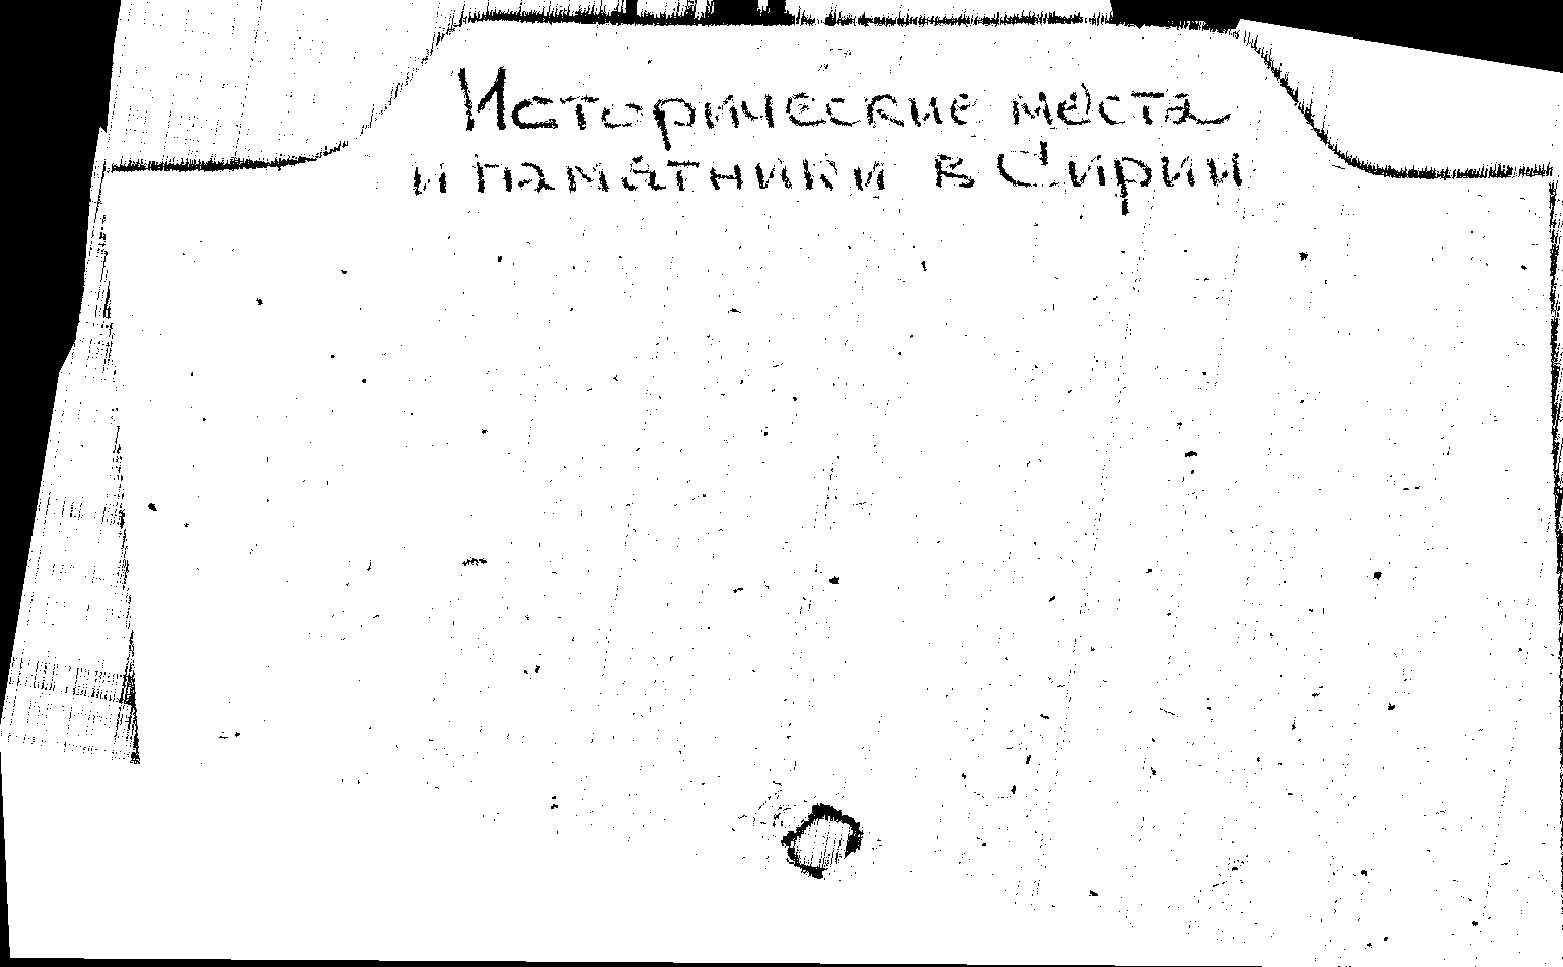 Исторические места
и памятники в Сирии